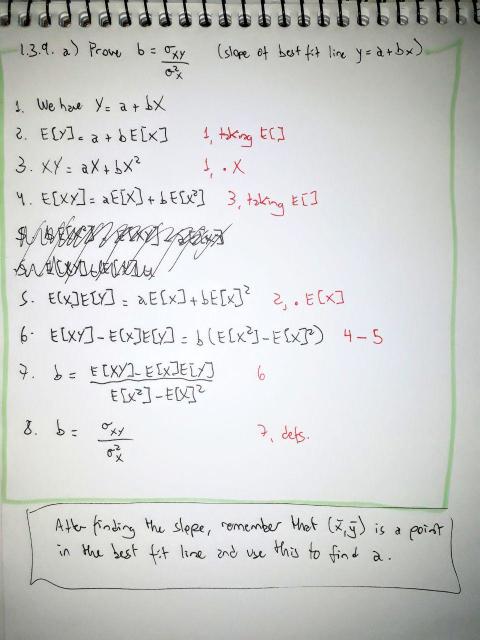 1.3.9. a) Prove b = σ_XY / σ²_X (slope of best fit line y = a + bx)
1. We have Y = a + bX
2. E[Y] = a + bE[X] 1, taking E[]
3. XY = aX + bX² 1, · X
4. E[XY] = aE[X] + bE[X²] 3, taking E[]
5. E[X]E[Y] = aE[X] + bE[X]² 2, · E[X]
6. E[XY] - E[X]E[Y] = b(E[X²] - E[X]²) 4 - 5
7. b = E[XY] - E[X]E[Y] / E[X²] - E[X]² 6
8. b = σ_XY / σ²_X 7, defs.
After finding the slope, remember that (x̄,ȳ) is a point
in the best fit line and use this to find a.